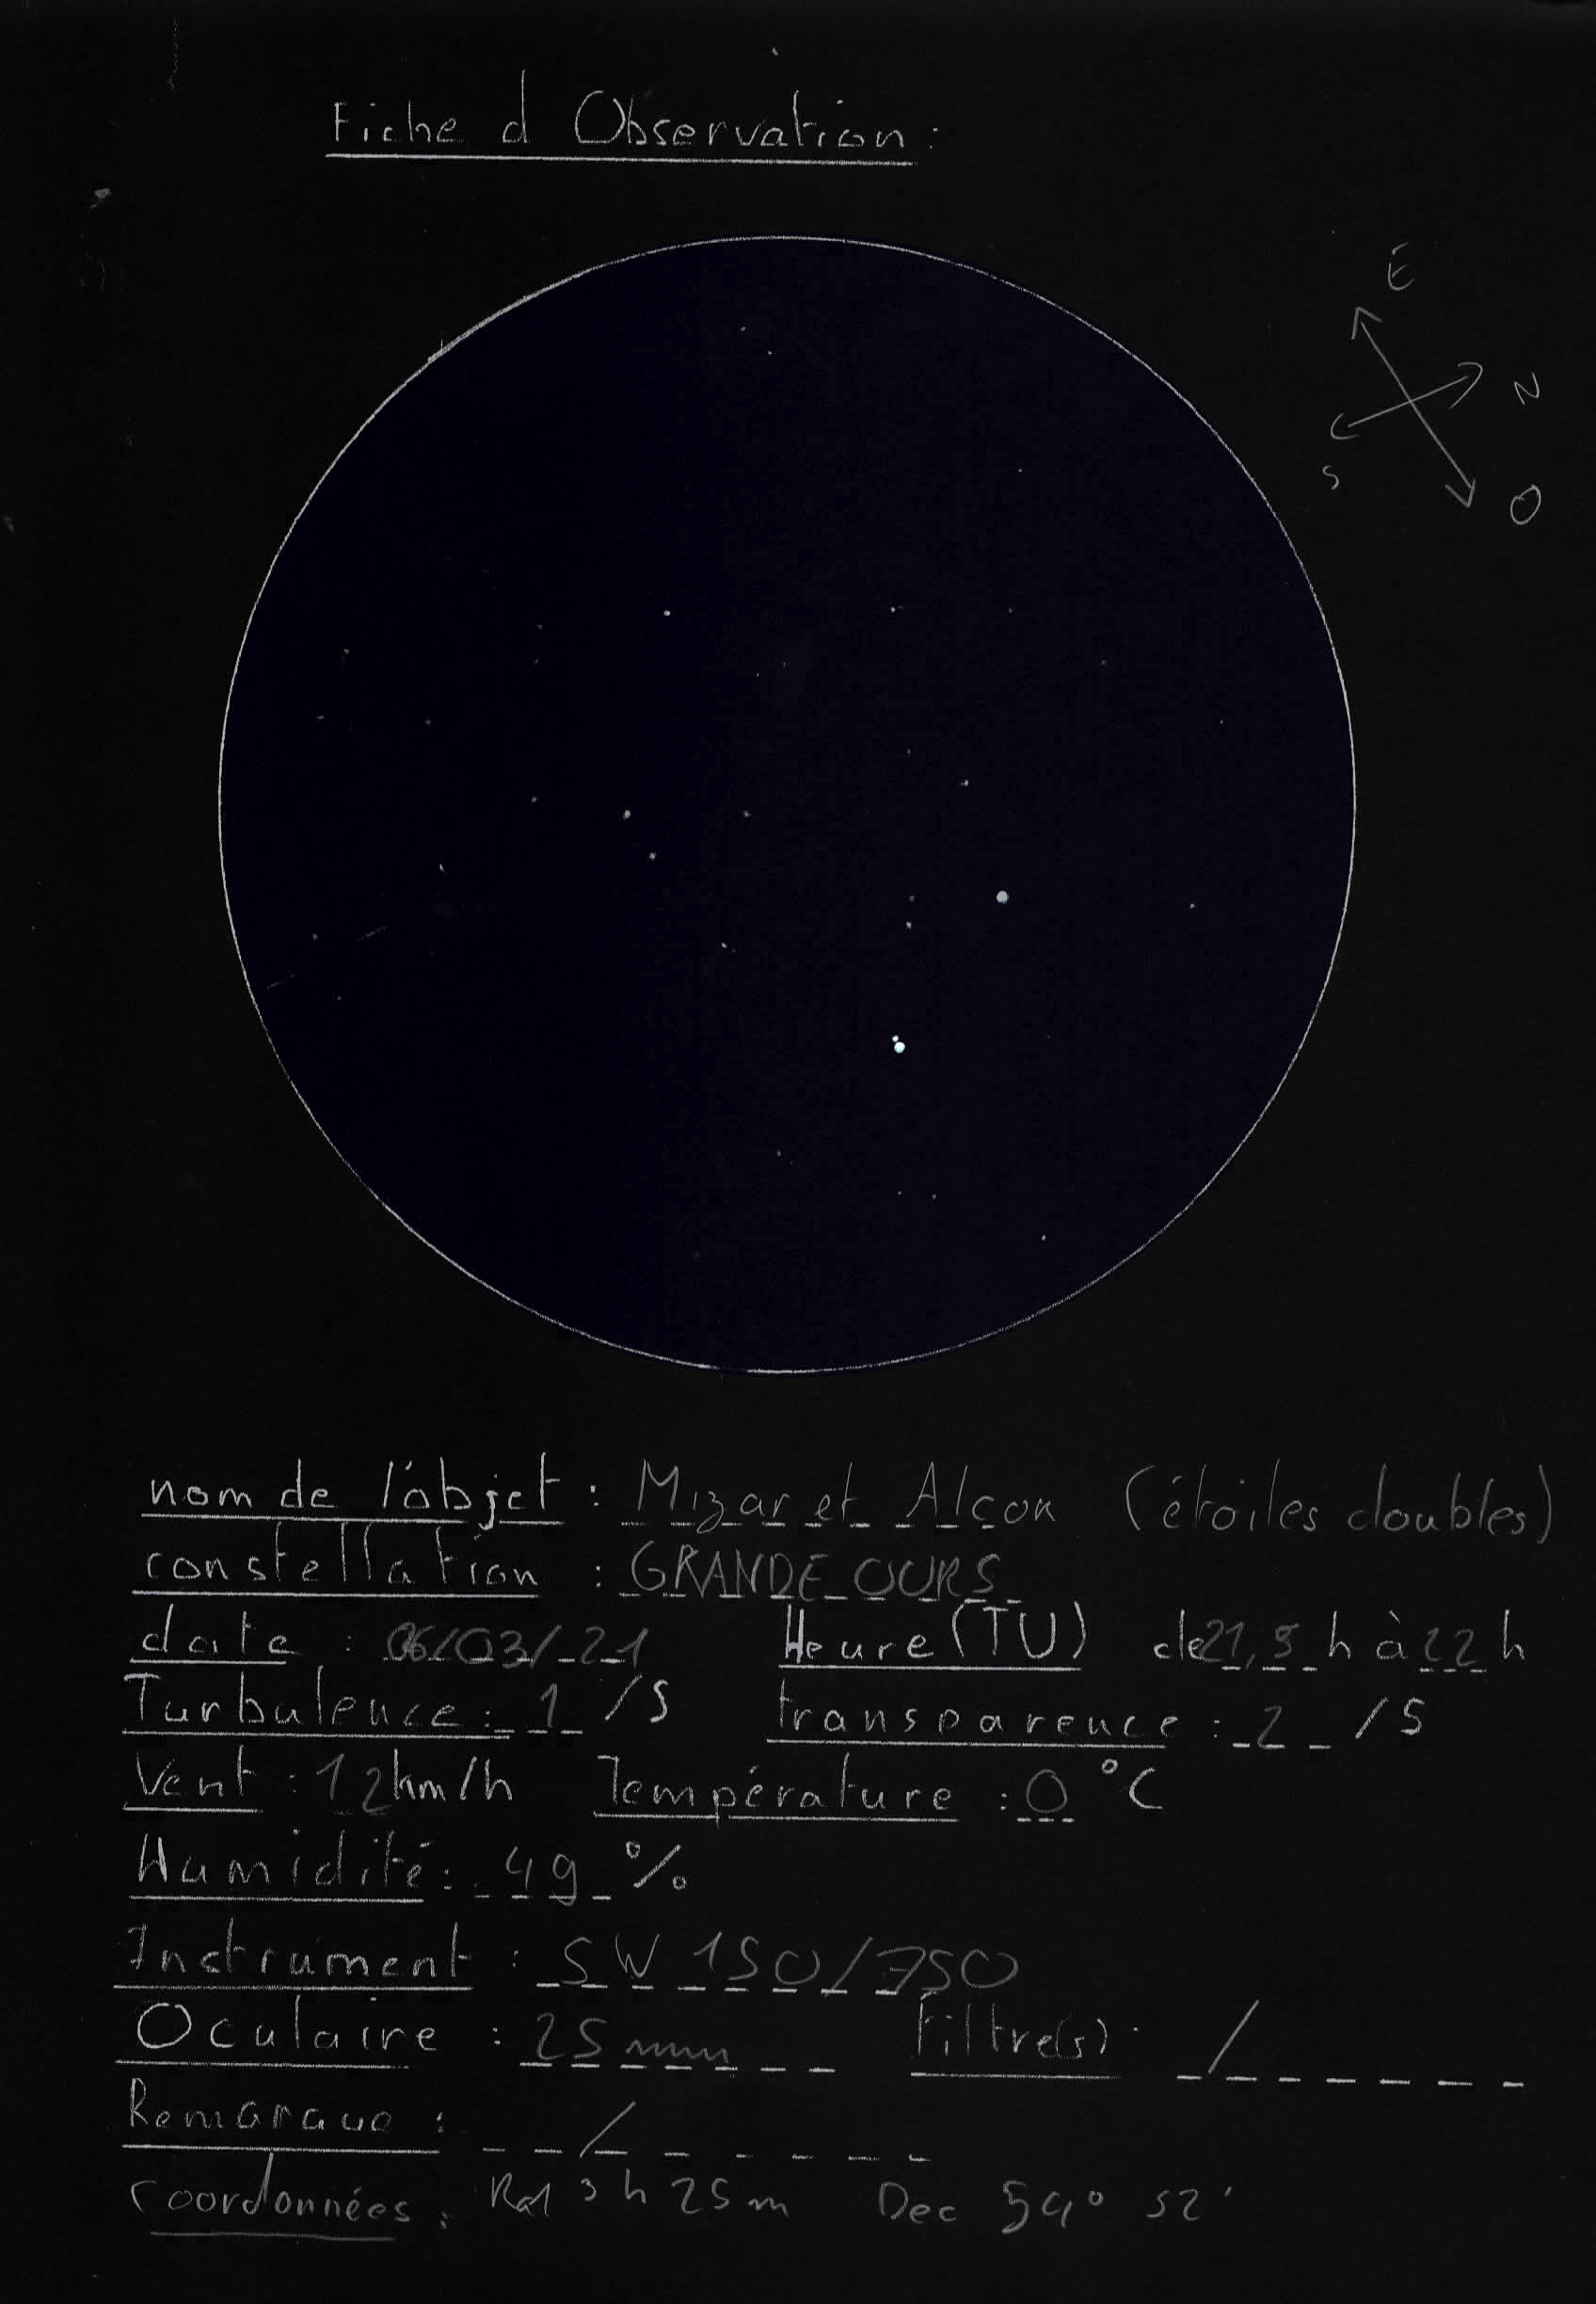 Fiche d Observation :
E
N
S
O
nom de l'objet : Mizar et Alçor (étoiles doubles)
constellation : GRANDE OURS
date : 06/03/21 Heure (TU) de 21,5 h à 22 h
Turbulence : 1 /5 transparence : 2 /5
Vent : 12 km/h Température : 0 °C
Humidité : 49 %
Instrument : SW 150/750
Oculaire : 25 mm Filtre(s) : /
Remarque : /
coordonnées : 3 h 25 m Dec 54° 52'